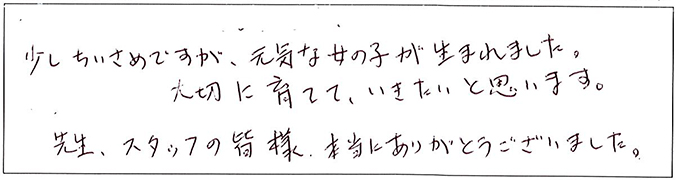 少しちいさめですが、元気な女の子が生まれました。
大切に育てて、いきたいと思います。
先生、スタッフの皆様、本当にありがとうございました。